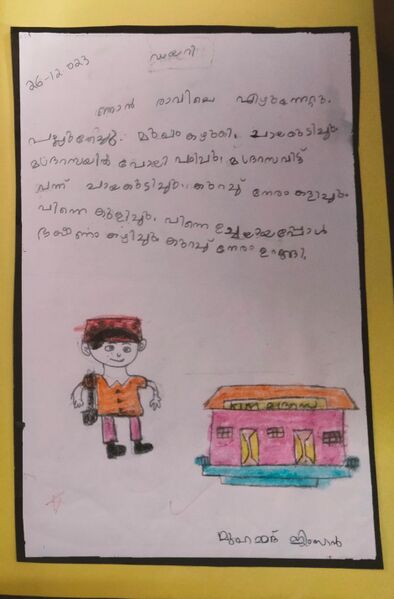 26-12 023
ഡയറി
ഞാൻ രാവിലെ എഴുന്നേറ്റു.
പല്ലുതേച്ചു. മുഖം കഴുകി. ചായകുടിച്ചു
മദ്രാസയിൽ പോയി പഠിച്ചു. മദ്രാസവിട്ട്
വന്ന് ചായകുടിച്ചു. കുറച്ച് നേരം കളിച്ചു.
പിന്നെ കുളിച്ചു. പിന്നെ ഉച്ചയായപ്പോൾ
ഭക്ഷണം കഴിച്ചു കുറച്ച് നേരം ഉറങ്ങി.
മദ്രസ
മുഹമ്മദ്